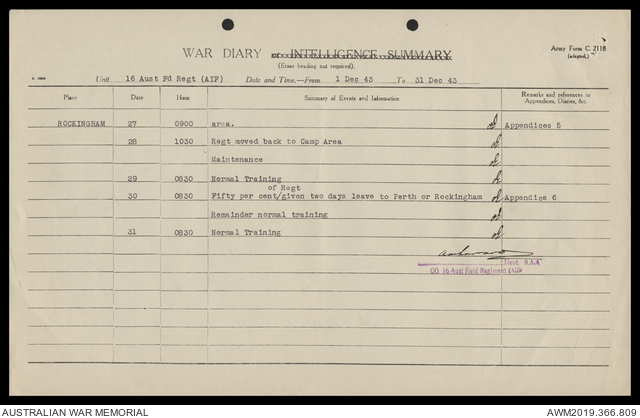 WAR DIARY or INTELLIGENCE SUMMARY
(Erase heading not required).
Army Form C. 2118
(adapted.)
Unit 16 Aust Fd Regt (AIF) Date and Time.—From 1 Dec 43 To 31 Dec 43
Place Date Hour Summary of Events and Information Remarks and references to Appendices, Diaries, &c.
ROCKINGHAM 27 0900 area. Appendices 5
28 1030 Regt moved back to Camp Area
Maintenance
29 0830 Normal Training
of Regt
30 0830 Fifty per cent/given two days leave to Perth or Rockingham Appendice 6
Remainder normal training
31 0830 Normal Training
Lieut. R.A.A
OO. 16 Aust Field Regiment (AIF)
AUSTRALIAN WAR MEMORIAL AWM2019.366.809